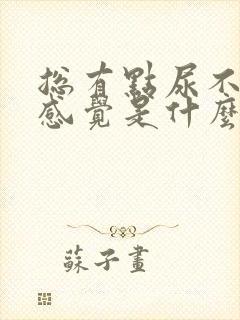 總有點尿不
感覺是什麼
蘇子畫